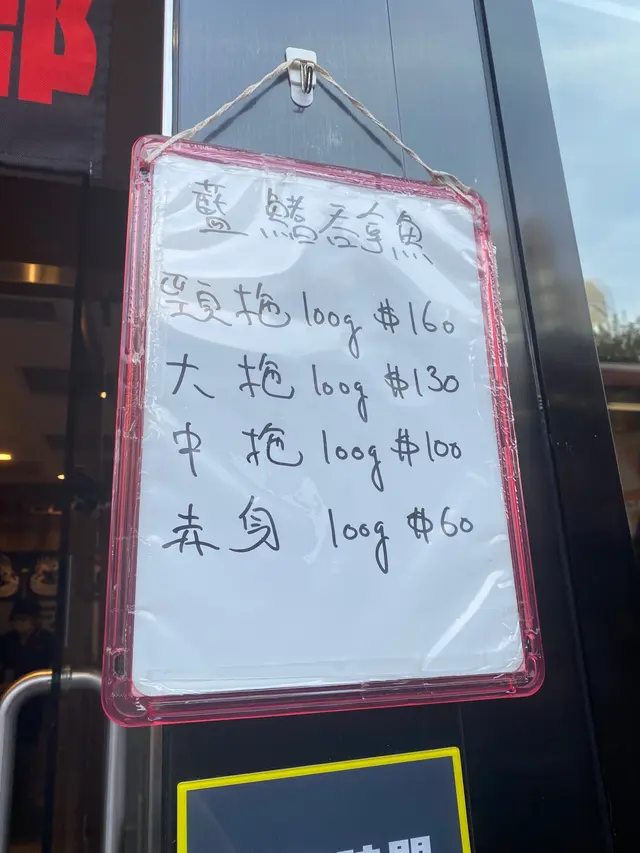 藍鰭吞拿魚
頸拖 100g $160
大拖 100g $130
中拖 100g $100
赤身 100g $60